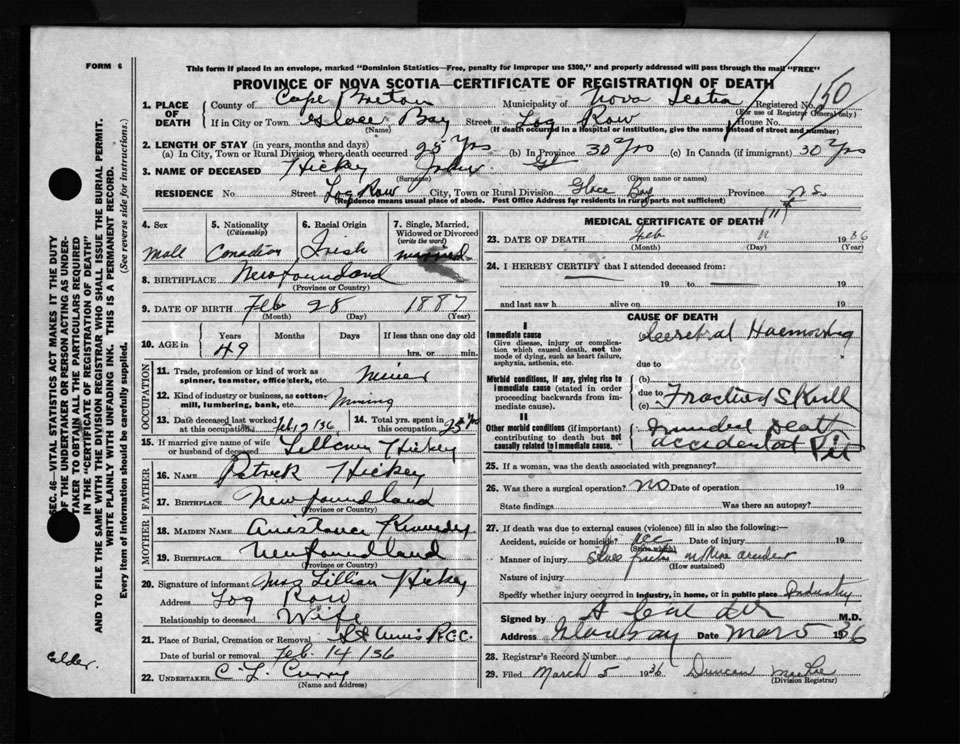 FORM 6
This form if placed in an envelope, marked "Dominion Statistics—Free, penalty for improper use $300," and properly addressed will pass through the mail "FREE"
PROVINCE OF NOVA SCOTIA—CERTIFICATE OF REGISTRATION OF DEATH
150
1. PLACE OF DEATH
County of Cape Breton Municipality of Nova Scotia Registered No.
(For use of Registrar General only)
If in City or Town Glace Bay Street Log Row House No.
(Name) (If death occurred in a hospital or institution, give the name instead of street and number)
2. LENGTH OF STAY (in years, months and days)
(a) In City, Town or Rural Division where death occurred 25 Yrs (b) In Province 30 Yrs (c) In Canada (if immigrant) 30 Yrs
3. NAME OF DECEASED Hickey
(Surname) (Given name or names)
RESIDENCE No. Street Log Row City, Town or Rural Division Glace Bay Province N.S.
(Residence means usual place of abode. Post Office Address for residents in rural parts not sufficient)
4. Sex
Male
5. Nationality
(Citizenship)
Canadian
6. Racial Origin
Irish
7. Single, Married, Widowed or Divorced
(write the word)
married
8. BIRTHPLACE Newfoundland
(Province or Country)
9. DATE OF BIRTH Feb 28 1887
(Month) (Day) (Year)
10. AGE in
Years Months Days If less than one day old
49 hrs. or min.
OCCUPATION
11. Trade, profession or kind of work as spinner, teamster, office clerk, etc. Miner
12. Kind of industry or business, as cotton-mill, lumbering, bank, etc. Mining
13. Date deceased last worked at this occupation
14. Total yrs. spent in this occupation 25 Yrs
15. If married give name of wife or husband of deceased Lillian Hickey
FATHER
16. NAME Patrick Hickey
17. BIRTHPLACE Newfoundland
(Province or Country)
MOTHER
18. MAIDEN NAME Kennedy
19. BIRTHPLACE Newfoundland
(Province or Country)
20. Signature of informant Mrs Lillian Hickey
Address Log Row
Relationship to deceased Wife
21. Place of Burial, Cremation or Removal St Anns R.C.C.
Date of burial or removal Feb. 14/36
22. UNDERTAKER C L Curry
(Name and address)
MEDICAL CERTIFICATE OF DEATH
"11"
23. DATE OF DEATH Feb 11 1936
(Month) (Day) (Year)
24. I HEREBY CERTIFY that I attended deceased from:
19 to 19
and last saw h alive on 19
CAUSE OF DEATH
I
Immediate cause
Give disease, injury or complication which caused death, not the mode of dying, such as heart failure, asphyxia, asthenia, etc.
due to
Morbid conditions, if any, giving rise to immediate cause (stated in order proceeding backwards from immediate cause).
(b)
due to
(c) Fractured Skull
II
Other morbid conditions (if important) contributing to death but not causally related to immediate cause.
Death
accident at Pit
25. If a woman, was the death associated with pregnancy?
26. Was there a surgical operation? NO Date of operation 19
State findings Was there an autopsy?
27. If death was due to external causes (violence) fill in also the following:—
Accident, suicide or homicide? Acc Date of injury 19
(State which)
Manner of injury in Mine accident
(How sustained)
Nature of injury
Specify whether injury occurred in industry, in home, or in public place Industry
Signed by M.D.
Address Glace Bay Date Mar 5 1936
28. Registrar's Record Number
29. Filed March 5 1936 Duncan
(Division Registrar)
SEC. 46—VITAL STATISTICS ACT MAKES IT THE DUTY
OF THE UNDERTAKER OR PERSON ACTING AS UNDER-
TAKER TO OBTAIN ALL THE PARTICULARS REQUIRED
IN THE "CERTIFICATE OF REGISTRATION OF DEATH"
AND TO FILE THE SAME WITH THE DIVISION REGISTRAR WHO SHALL ISSUE THE BURIAL PERMIT.
WRITE PLAINLY WITH UNFADING INK. THIS IS A PERMANENT RECORD.
Every item of information should be carefully supplied. (See reverse side for instructions.)
Calder.